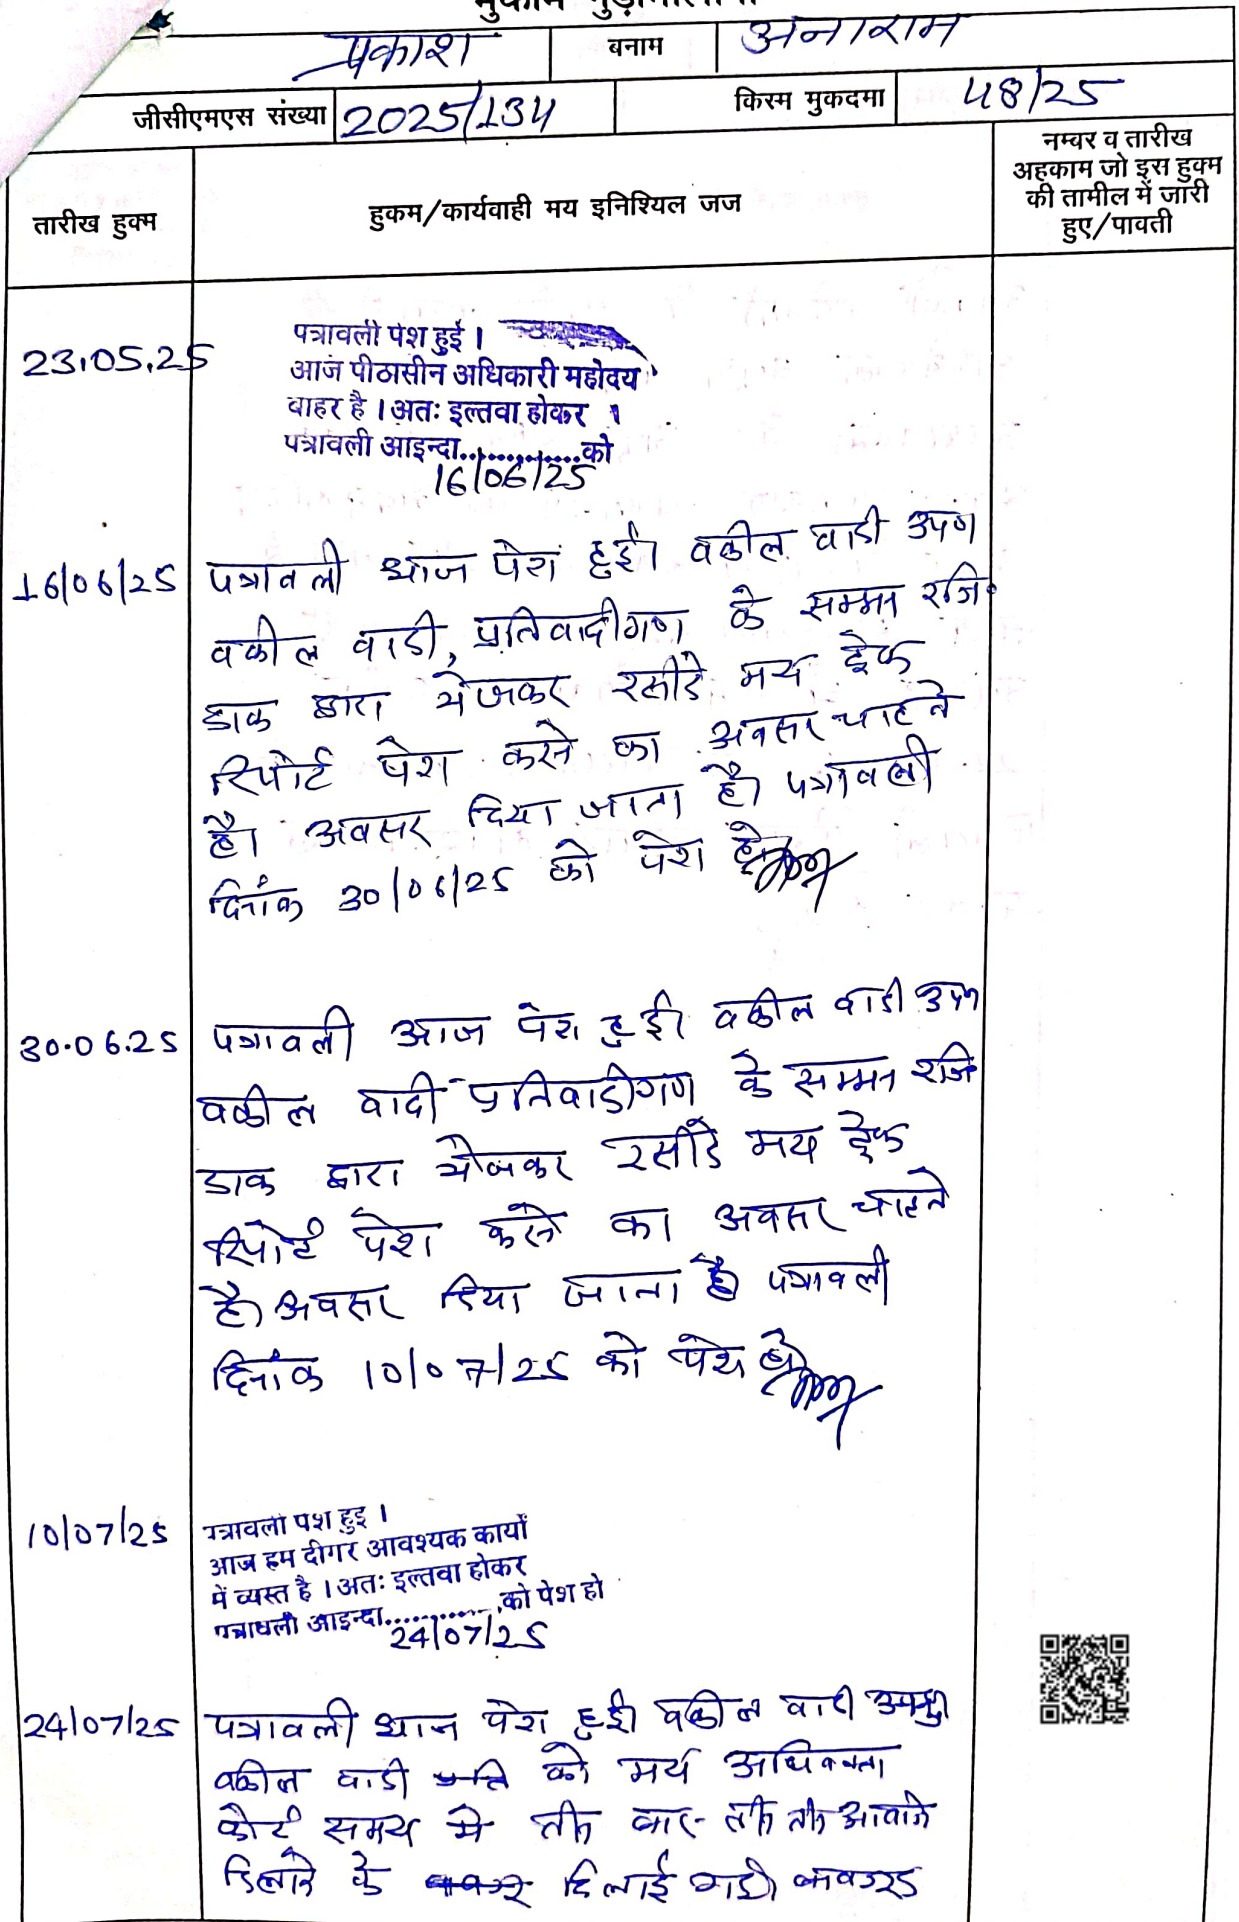 मुकाम गुड़ामालानी
प्रकाश बनाम अनाराम
जीसीएमएस संख्या 2025/134 किस्म मुकदमा 48/25
तारीख हुक्म
हुकम/कार्यवाही मय इनिश्यिल जज
नम्बर व तारीख
अहकाम जो इस हुक्म
की तामील में जारी
हुए/पावती
23.05.25
पत्रावली पेश हुई।
आज पीठासीन अधिकारी महोदय
बाहर है। अतः इल्तवा होकर
पत्रावली आइन्दा...............को
16/06/25
16/06/25 पत्रावली आज पेश हुई। वकील वादी उपण
वकील वादी, प्रतिवादीगण के सम्मन रजि.
डाक द्वारा भेजकर रसीदे मय ट्रेक
रिपोर्ट पेश करने का अवसर चाहते
है। अवसर दिया जाता है। पत्रावली
दिनांक 30/06/25 को पेश हो
30.06.25 पत्रावली आज पेश हुई। वकील वादी उपण
वकील वादी प्रतिवादीगण के सम्मन रजि
डाक द्वारा भेजकर रसीदे मय ट्रेक
रिपोर्ट पेश करने का अवसर चाहते
है। अवसर दिया जाता है। पत्रावली
दिनांक 10/07/25 को पेश हो
10/07/25
पत्रावली पेश हुई।
आज हम दीगर आवश्यक कार्यों
में व्यस्त है। अतः इल्तवा होकर
पत्रावली आइन्दा...............को पेश हो
24/07/25
24/07/25 पत्रावली आज पेश हुई वकील वादी
वकील वादी को मय अधिवक्ता
कोर्ट समय मे तीन बार आवाजे
दिलाने के दिलाई गयी बावजूद